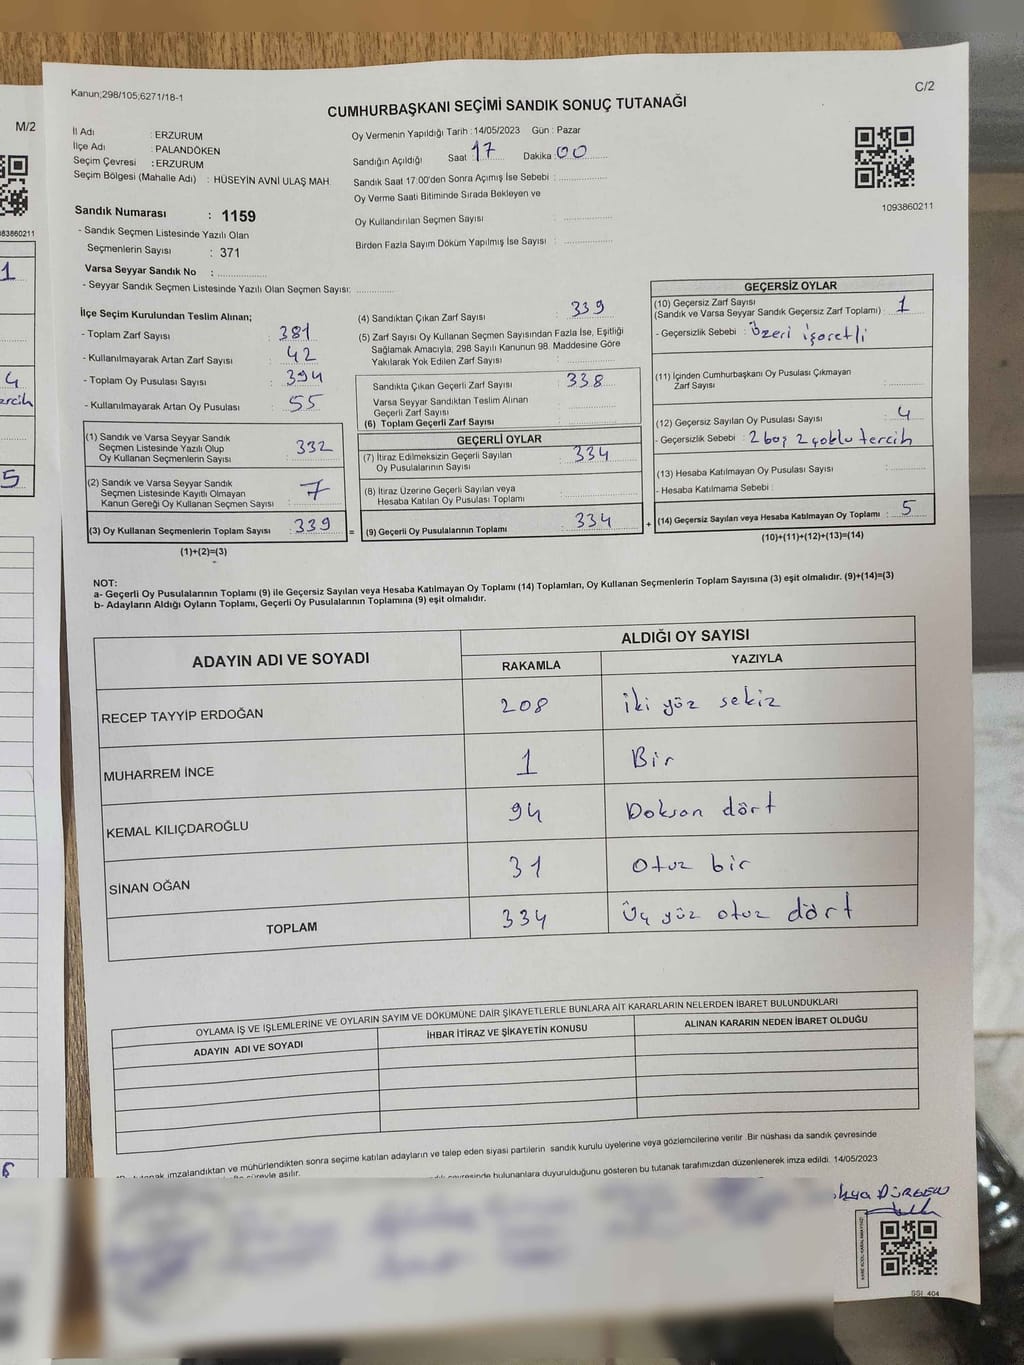 Kanun;298/105;6271/18-1
C/2
CUMHURBAŞKANI SEÇİMİ SANDIK SONUÇ TUTANAĞI
M/2
İl Adı : ERZURUM
İlçe Adı : PALANDÖKEN
Seçim Çevresi : ERZURUM
Seçim Bölgesi (Mahalle Adı) : HÜSEYİN AVNİ ULAŞ MAH.
Sandık Numarası : 1159
- Sandık Seçmen Listesinde Yazılı Olan
Seçmenlerin Sayısı : 371
Varsa Seyyar Sandık No :
- Seyyar Sandık Seçmen Listesinde Yazılı Olan Seçmen Sayısı:
Oy Vermenin Yapıldığı Tarih : 14/05/2023 Gün : Pazar
Sandığın Açıldığı Saat 17 Dakika 00
Sandık Saat 17:00'den Sonra Açımış İse Sebebi :
Oy Verme Saati Bitiminde Sırada Bekleyen ve
Oy Kullandırılan Seçmen Sayısı :
Birden Fazla Sayım Döküm Yapılmış İse Sayısı :
1093860211
İlçe Seçim Kurulundan Teslim Alınan;
- Toplam Zarf Sayısı : 381
- Kullanılmayarak Artan Zarf Sayısı : 42
- Toplam Oy Pusulası Sayısı : 394
- Kullanılmayarak Artan Oy Pusulası : 55
(1) Sandık ve Varsa Seyyar Sandık
Seçmen Listesinde Yazılı Olup
Oy Kullanan Seçmenlerin Sayısı : 332
(2) Sandık ve Varsa Seyyar Sandık
Seçmen Listesinde Kayıtlı Olmayan
Kanun Gereği Oy Kullanan Seçmen Sayısı : 7
(3) Oy Kullanan Seçmenlerin Toplam Sayısı : 339 =
(1)+(2)=(3)
(4) Sandıktan Çıkan Zarf Sayısı : 339
(5) Zarf Sayısı Oy Kullanan Seçmen Sayısından Fazla İse, Eşitliği
Sağlamak Amacıyla, 298 Sayılı Kanunun 98. Maddesine Göre
Yakılarak Yok Edilen Zarf Sayısı :
Sandıkta Çıkan Geçerli Zarf Sayısı : 338
Varsa Seyyar Sandıktan Teslim Alınan
Geçerli Zarf Sayısı :
(6) Toplam Geçerli Zarf Sayısı :
GEÇERLİ OYLAR
(7) İtiraz Edilmeksizin Geçerli Sayılan
Oy Pusulalarının Sayısı : 334
(8) İtiraz Üzerine Geçerli Sayılan veya
Hesaba Katılan Oy Pusulası Toplamı :
(9) Geçerli Oy Pusulalarının Toplamı : 334 +
GEÇERSİZ OYLAR
(10) Geçersiz Zarf Sayısı
(Sandık ve Varsa Seyyar Sandık Geçersiz Zarf Toplamı) : 1
- Geçersizlik Sebebi : Üzeri işaretli
(11) İçinden Cumhurbaşkanı Oy Pusulası Çıkmayan
Zarf Sayısı :
(12) Geçersiz Sayılan Oy Pusulası Sayısı : 4
- Geçersizlik Sebebi : 2 boş 2 çoklu tercih
(13) Hesaba Katılmayan Oy Pusulası Sayısı :
- Hesaba Katılmama Sebebi :
(14) Geçersiz Sayılan veya Hesaba Katılmayan Oy Toplamı : 5
(10)+(11)+(12)+(13)=(14)
NOT:
a- Geçerli Oy Pusulalarının Toplamı (9) ile Geçersiz Sayılan veya Hesaba Katılmayan Oy Toplamı (14) Toplamları, Oy Kullanan Seçmenlerin Toplam Sayısına (3) eşit olmalıdır. (9)+(14)=(3)
b- Adayların Aldığı Oyların Toplamı, Geçerli Oy Pusulalarının Toplamına (9) eşit olmalıdır.
ADAYIN ADI VE SOYADI
ALDIĞI OY SAYISI
RAKAMLA YAZIYLA
RECEP TAYYİP ERDOĞAN 208 iki yüz sekiz
MUHARREM İNCE 1 Bir
KEMAL KILIÇDAROĞLU 94 Doksan dört
SİNAN OĞAN 31 Otuz bir
TOPLAM 334 Üç yüz otuz dört
OYLAMA İŞ VE İŞLEMLERİNE VE OYLARIN SAYIM VE DÖKÜMÜNE DAİR ŞİKAYETLERLE BUNLARA AİT KARARLARIN NELERDEN İBARET BULUNDUKLARI
ADAYIN ADI VE SOYADI İHBAR İTİRAZ VE ŞİKAYETİN KONUSU ALINAN KARARIN NEDEN İBARET OLDUĞU
imzalandıktan ve mühürlendikten sonra seçime katılan adayların ve talep eden siyasi partilerin sandık kurulu üyelerine veya gözlemcilerine verilir .Bir nüshası da sandık çevresinde
süreyle asılır.
bulunanlara duyurulduğunu gösteren bu tutanak tarafımızdan düzenlenerek imza edildi. 14/05/2023
SSI_404